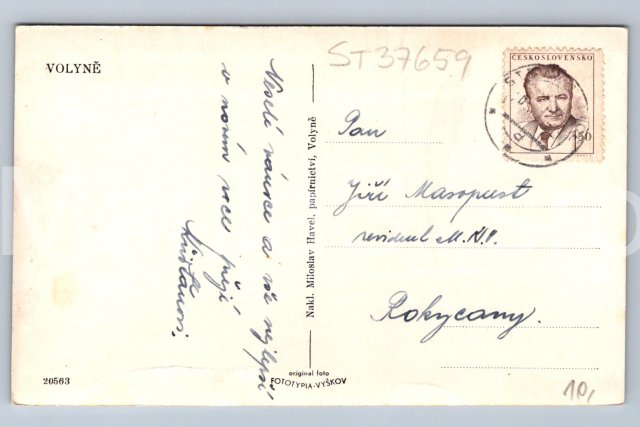 VOLYNĚ
ST37659
ČESKOSLOVENSKO
1.50
Veselé vánoce a vše nejlepší
v novém roce přejí
Nakl. Miloslav Havel, papírnictví, Volyně
Pan
Jiří Masopust
revident M.N.V.
Rokycany.
original foto
FOTOTYPIA-VYŠKOV
20563
10,